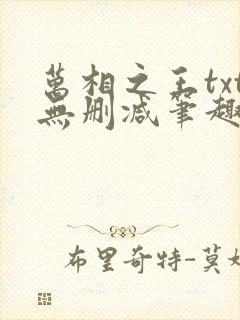 萬相之王txt
無删减筆趣
布里奇特-莫